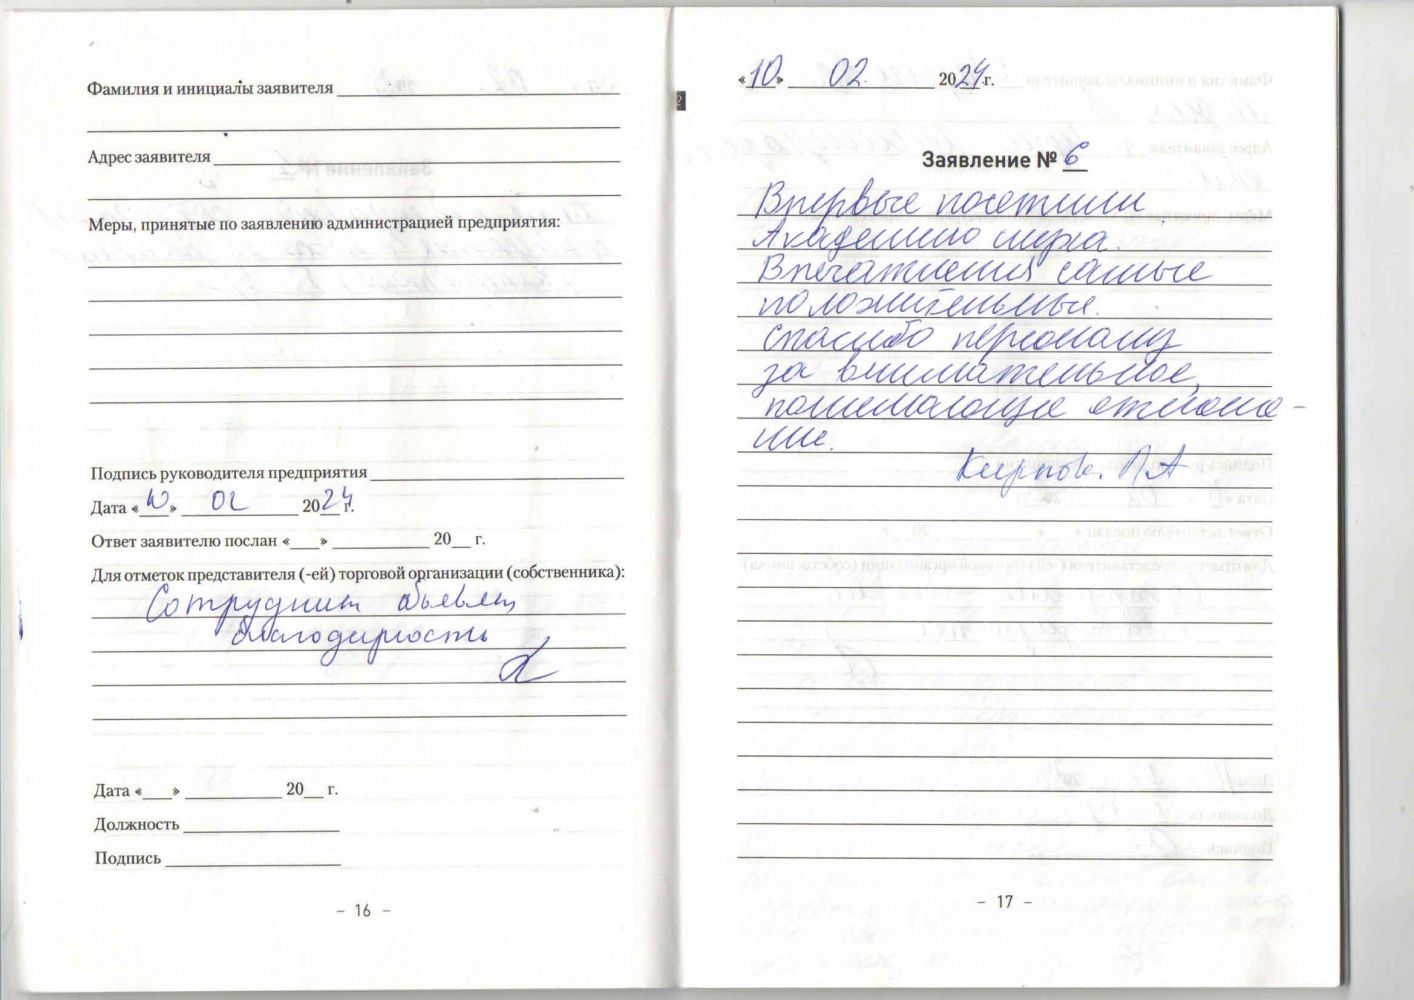 Фамилия и инициалы заявителя
Адрес заявителя
Меры, принятые по заявлению администрацией предприятия:
Подпись руководителя предприятия
Дата «10» 02 2024 г.
Ответ заявителю послан «___» ____________ 20__ г.
Для отметок представителя (-ей) торговой организации (собственника):
Сотрудник объявлен
благодарность
Дата «___» ____________ 20__ г.
Должность
Подпись
– 16 –
«10» 02. 2024 г.
Заявление № 6
Впервые посетили
Академию
Впечатления самые
положительные.
Спасибо персоналу
за внимательное,
понимающее отноше-
ние.
– 17 –